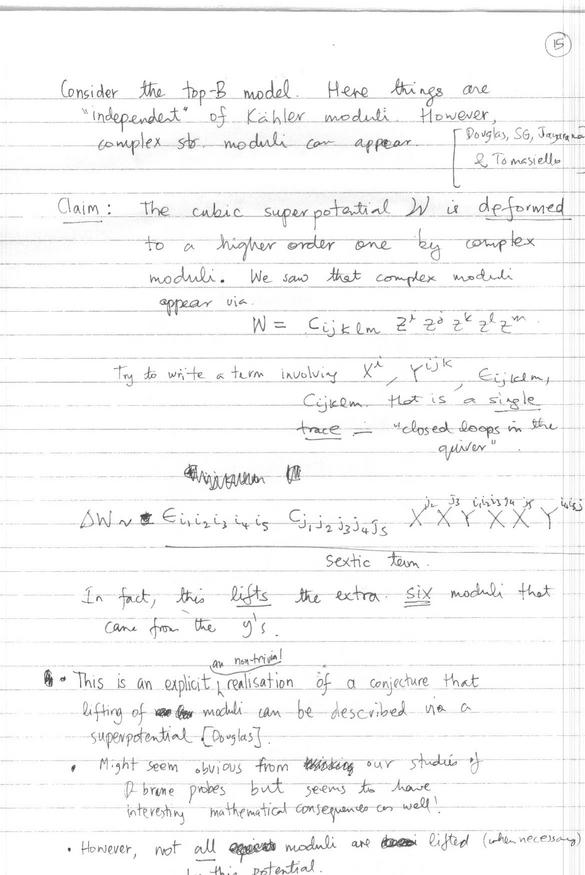 15
Consider the top-B model. Here things are
"independent" of Kähler moduli. However,
complex str. moduli can appear.
[Douglas, SG, Jayarama
& Tomasiello
Claim: The cubic superpotential W is deformed
to a higher order one by complex
moduli. We saw that complex moduli
appear via.
W = C_{ijklm} Z^i Z^j Z^k Z^l Z^m.
Try to write a term involving X^i, Y^{ijk}, ϵ_{ijklm},
C_{ijklm}. that is a single
trace = "closed loops in the
quiver".
ΔW ~ ϵ_{i1 i2 i3 i4 i5} C_{j1 j2 j3 j4 j5} X^{j2} X^{j3} Y^{i1 i2 i3} X^{j4} X^{j5} Y^{i4 i5 j1}
Sextic term.
In fact, this lifts the extra six moduli that
came from the y's.
• This is an explicit, an non-trivial realisation of a conjecture that
lifting of moduli can be described via a
superpotential [Douglas].
• Might seem obvious from our studies of
D brane probes but seems to have
interesting mathematical consequences as well!
• However, not all moduli are lifted (when necessary)
by this potential.